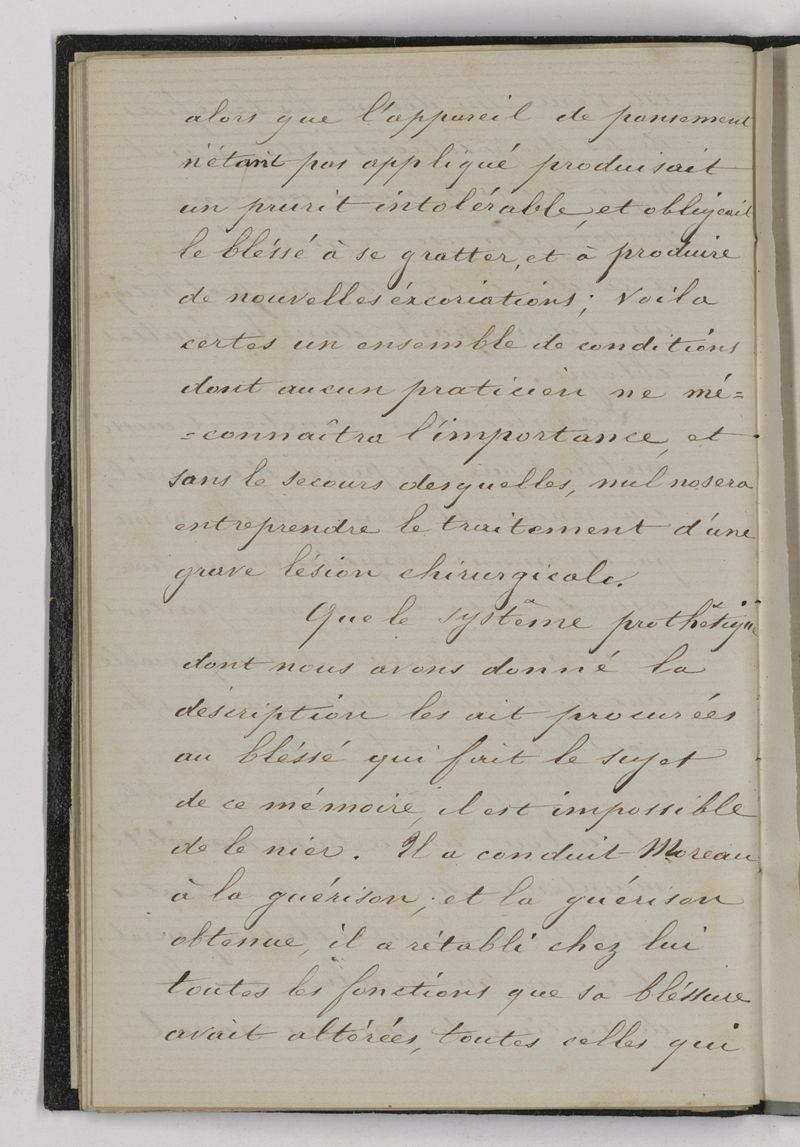 alors que l'appareil de pansement
n'étant pas appliqué produisait
un prurit intolérable, et obligeait
le bléssé à se gratter, et à produire
de nouvelles éxcoriations; Voila
certes un ensemble de conditions
dont aucun praticien ne mé=
=connaîtra l'importance, et
sans le secours desquelles, nul nosera
entreprendre le traitement d'une
grave lésion chirurgicale.
Que le système prothétique
dont nous avons donné la
déscription les ait procurées
au bléssé qui fait le sujet
de ce mémoire, il est impossible
de le nier. Il a conduit Moreau
à la guérison; et la guérison
obtenue, il a rétabli chez lui
toutes les fonctions que sa bléssure
avait altérées, toutes celles qui